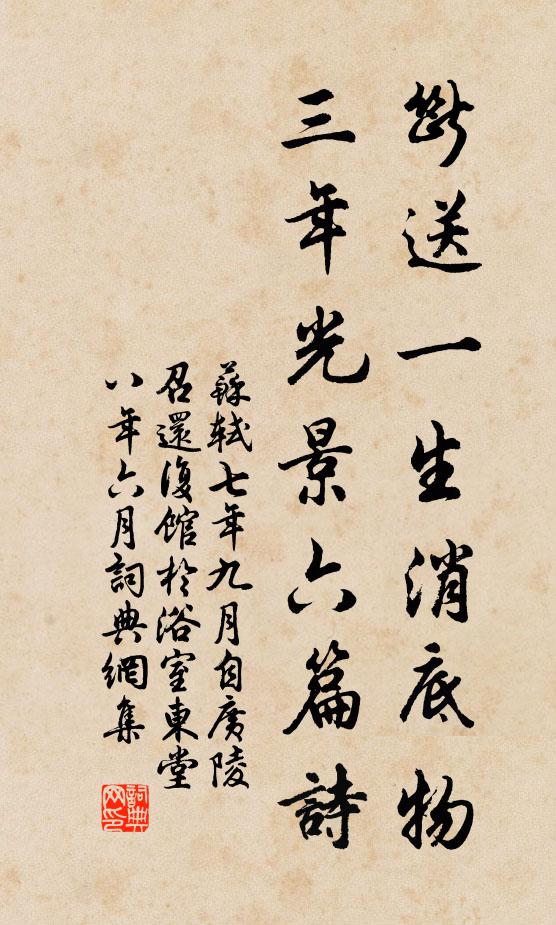 斷送一生消底物
三年光景六篇詩
蘇軾七年九月自廣陵
召還復館於浴室東堂
八年六月詞典網集
詞典網印